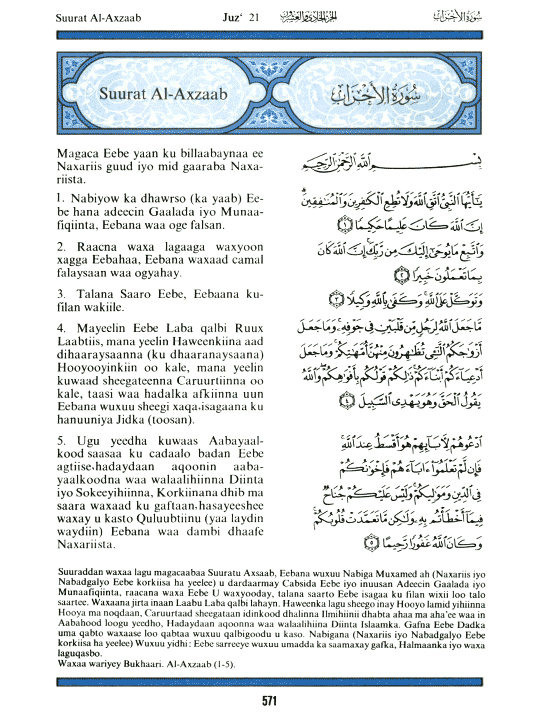 Suurat Al-Axzaab Juz‘ 21 الجزء الحادي والعشرون سورة الأحزاب
Suurat Al-Axzaab سُورَةُ الأَحْزَابِ
Magaca Eebe yaan ku billaabaynaa ee
Naxariis guud iyo mid gaaraba Naxa-
riista.
1. Nabiyow ka dhawrso (ka yaab) Ee-
be hana adeecin Gaalada iyo Munaa-
fiqiinta, Eebana waa oge falsan.
2. Raacna waxa lagaaga waxyoon
xagga Eebahaa, Eebana waxaad camal
falaysaan waa ogyahay.
3. Talana Saaro Eebe, Eebaana ku-
filan wakiile.
4. Mayeelin Eebe Laba qalbi Ruux
Laabtiis, mana yeelin Haweenkiina aad
dihaaraysaanna (ku dhaaranaysaana)
Hooyooyinkiin oo kale, mana yeelin
kuwaad sheegateenna Caruurtiinna oo
kale, taasi waa hadalka afkiinna uun
Eebana wuxuu sheegi xaqa.isagaana ku
hanuuniya Jidka (toosan).
5. Ugu yeedha kuwaas Aabayaal-
kood saasaa ku cadaalo badan Eebe
agtiise.hadaydaan aqoonin aaba-
yaalkoodna waa walaalihiinna Diinta
iyo Sokeeyihiinna, Korkiinana dhib ma
saara waxaad ku gaftaan.hasayeeshee
waxay u kasto Quluubtiinu (yaa laydin
waydiin) Eebana waa dambi dhaafe
Naxariista.
بِسْمِ اللَّهِ الرَّحْمَٰنِ الرَّحِيمِ
يَٰٓأَيُّهَا النَّبِىُّ اتَّقِ اللَّهَ وَلَا تُطِعِ الْكَٰفِرِينَ وَالْمُنَٰفِقِينَ
إِنَّ اللَّهَ كَانَ عَلِيمًا حَكِيمًا ١
وَاتَّبِعْ مَا يُوحَىٰٓ إِلَيْكَ مِن رَّبِّكَ إِنَّ اللَّهَ كَانَ
بِمَا تَعْمَلُونَ خَبِيرًا ٢
وَتَوَكَّلْ عَلَى اللَّهِ وَكَفَىٰ بِاللَّهِ وَكِيلًا ٣
مَّا جَعَلَ اللَّهُ لِرَجُلٍ مِّن قَلْبَيْنِ فِى جَوْفِهِ وَمَا جَعَلَ
أَزْوَٰجَكُمُ الَّٰٓـِٔى تُظَٰهِرُونَ مِنْهُنَّ أُمَّهَٰتِكُمْ وَمَا جَعَلَ
أَدْعِيَآءَكُمْ أَبْنَآءَكُمْ ذَٰلِكُمْ قَوْلُكُم بِأَفْوَٰهِكُمْ وَاللَّهُ
يَقُولُ الْحَقَّ وَهُوَ يَهْدِى السَّبِيلَ ٤
ادْعُوهُمْ لِءَابَآئِهِمْ هُوَ أَقْسَطُ عِندَ اللَّهِ
فَإِن لَّمْ تَعْلَمُوٓا۟ ءَابَآءَهُمْ فَإِخْوَٰنُكُمْ
فِى الدِّينِ وَمَوَٰلِيكُمْ وَلَيْسَ عَلَيْكُمْ جُنَاحٌ
فِيمَآ أَخْطَأْتُم بِهِ وَلَٰكِن مَّا تَعَمَّدَتْ قُلُوبُكُمْ
وَكَانَ اللَّهُ غَفُورًا رَّحِيمًا ٥
Suuraddan waxaa lagu magacaabaa Suuratu Axsaab, Eebana wuxuu Nabiga Muxamed ah (Naxariis iyo
Nabadgalyo Eebe korkiisa ha yeelee) u dardaarmay Cabsida Eebe iyo imuusan Adeecin Gaalada iyo
Munaafiqiinta, raacana waxa Eebe U waxyooday, talana saarto Eebe isagaa ku filan wixii loo talo
saartee. Waxaana jirta inaan Laabu Laba qalbi lahayn. Haweenka lagu sheego inay Hooyo lamid yihiinna
Hooya ma noqdaan, Caruurtaad sheegataan idinkood dhalinna Ilmihiinii dhabta ahaa ma aha'ee waa in
Aabahood loogu yeedho, Hadaydaan aqoonna waa walaalihiina Diinta Islaamka. Gafna Eebe Dadka
uma qabto waxaase loo qabtaa wuxuu qalbigoodu u kaso. Nabigana (Naxariis iyo Nabadgalyo Eebe
korkiisa ha yeelee) Wuxuu yidhi: Eebe sarreeye wuxuu umadda ka saamaxay gafka, Halmaanka iyo waxa
laguqasbo.
Waxaa wariyey Bukhaari. Al-Axzaab (1-5).
571